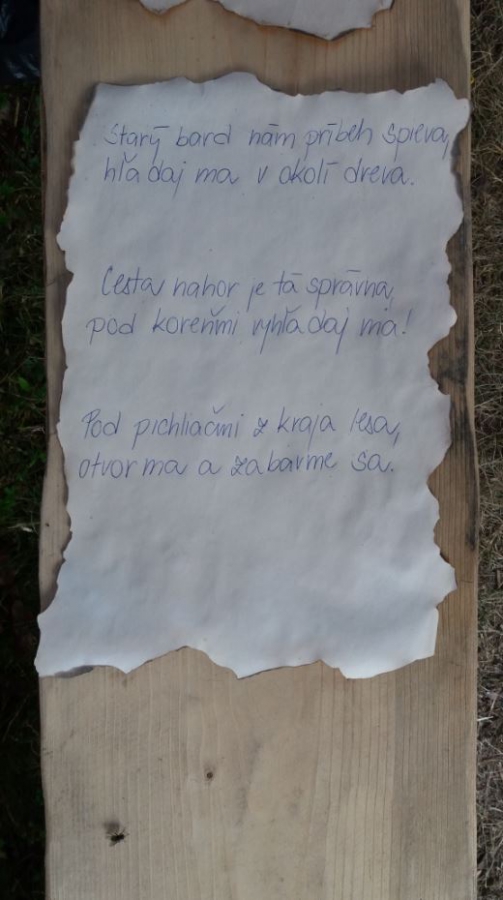 Starý bard nám príbeh spieva,
hľadaj ma v okolí dreva.
Cesta nahor je tá správna,
pod koreňmi vyhľadaj ma!
Pod pichliačmi z kraja lesa,
otvor ma a zabavme sa.